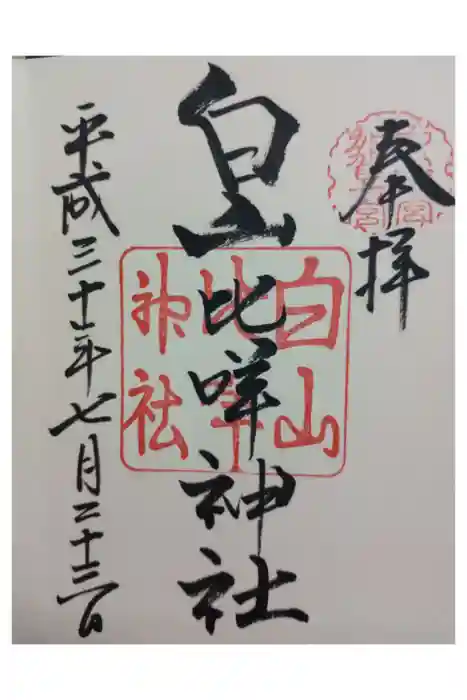 奉拝
白山比咩神社
平成三十年七月二十三日
白山
比咩
神社